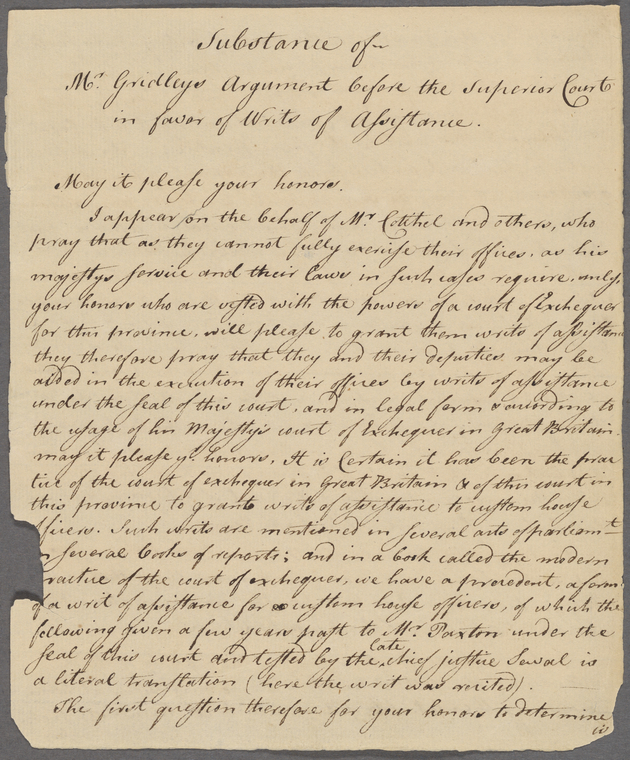 Substance of
Mr. Gridleys Argument before the Superior Court
in favor of Writs of Assistance.
May it please your honors.
I appear on the behalf of Mr Cotchel and others, who
pray that as they cannot fully exercise their offices, as his
majestys service and their laws in such cases require, unless
your honors who are vested with the powers of a court of Exchequer
for this province, will please to grant them writs of assistance
they therefore pray that they and their deputies may be
aided in the execution of their offices by writs of assistance
under the seal of this court, and in legal form & according to
the usage of his Majesty's court of Exchequer in Great Britain.
may it please yr honors, It is Certain it has been the prac
tice of the court of exchequer in Great Britain & of this court in
this province to grant writs of assistance to custom house
fficers. Such writs are mentioned in several acts of parliamt
n several books of reports; and in a book called the modern
ractice of the court of exchequer, we have a precedent, a form
of a writ of assistance for custom house officers, of which the
following given a few years past to Mr. Paxton under the
seal of this court and tested by the late chief justice Sewal is
a literal translation (here the writ was recited).
The first question therefore for your honors to determine
is